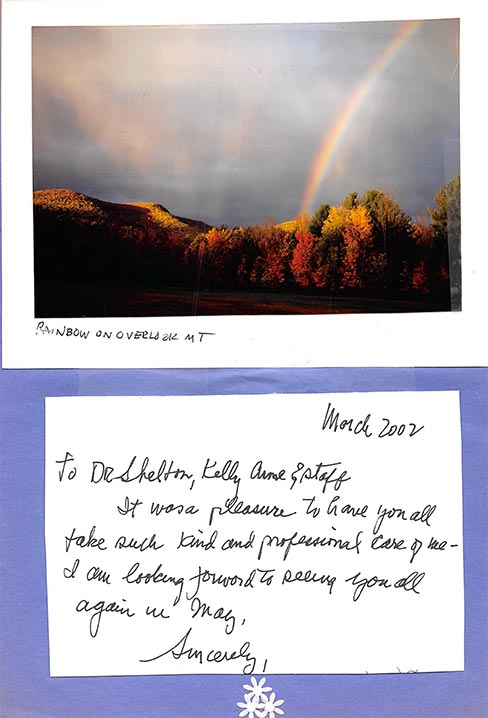 RAINBOW ON OVERLOOK MT
March 2002
To Dr Shelton, Kelly Anne & staff
It was a pleasure to have you all
take such kind and professional care of me-
I am looking forward to seeing you all
again in May,
Sincerely,